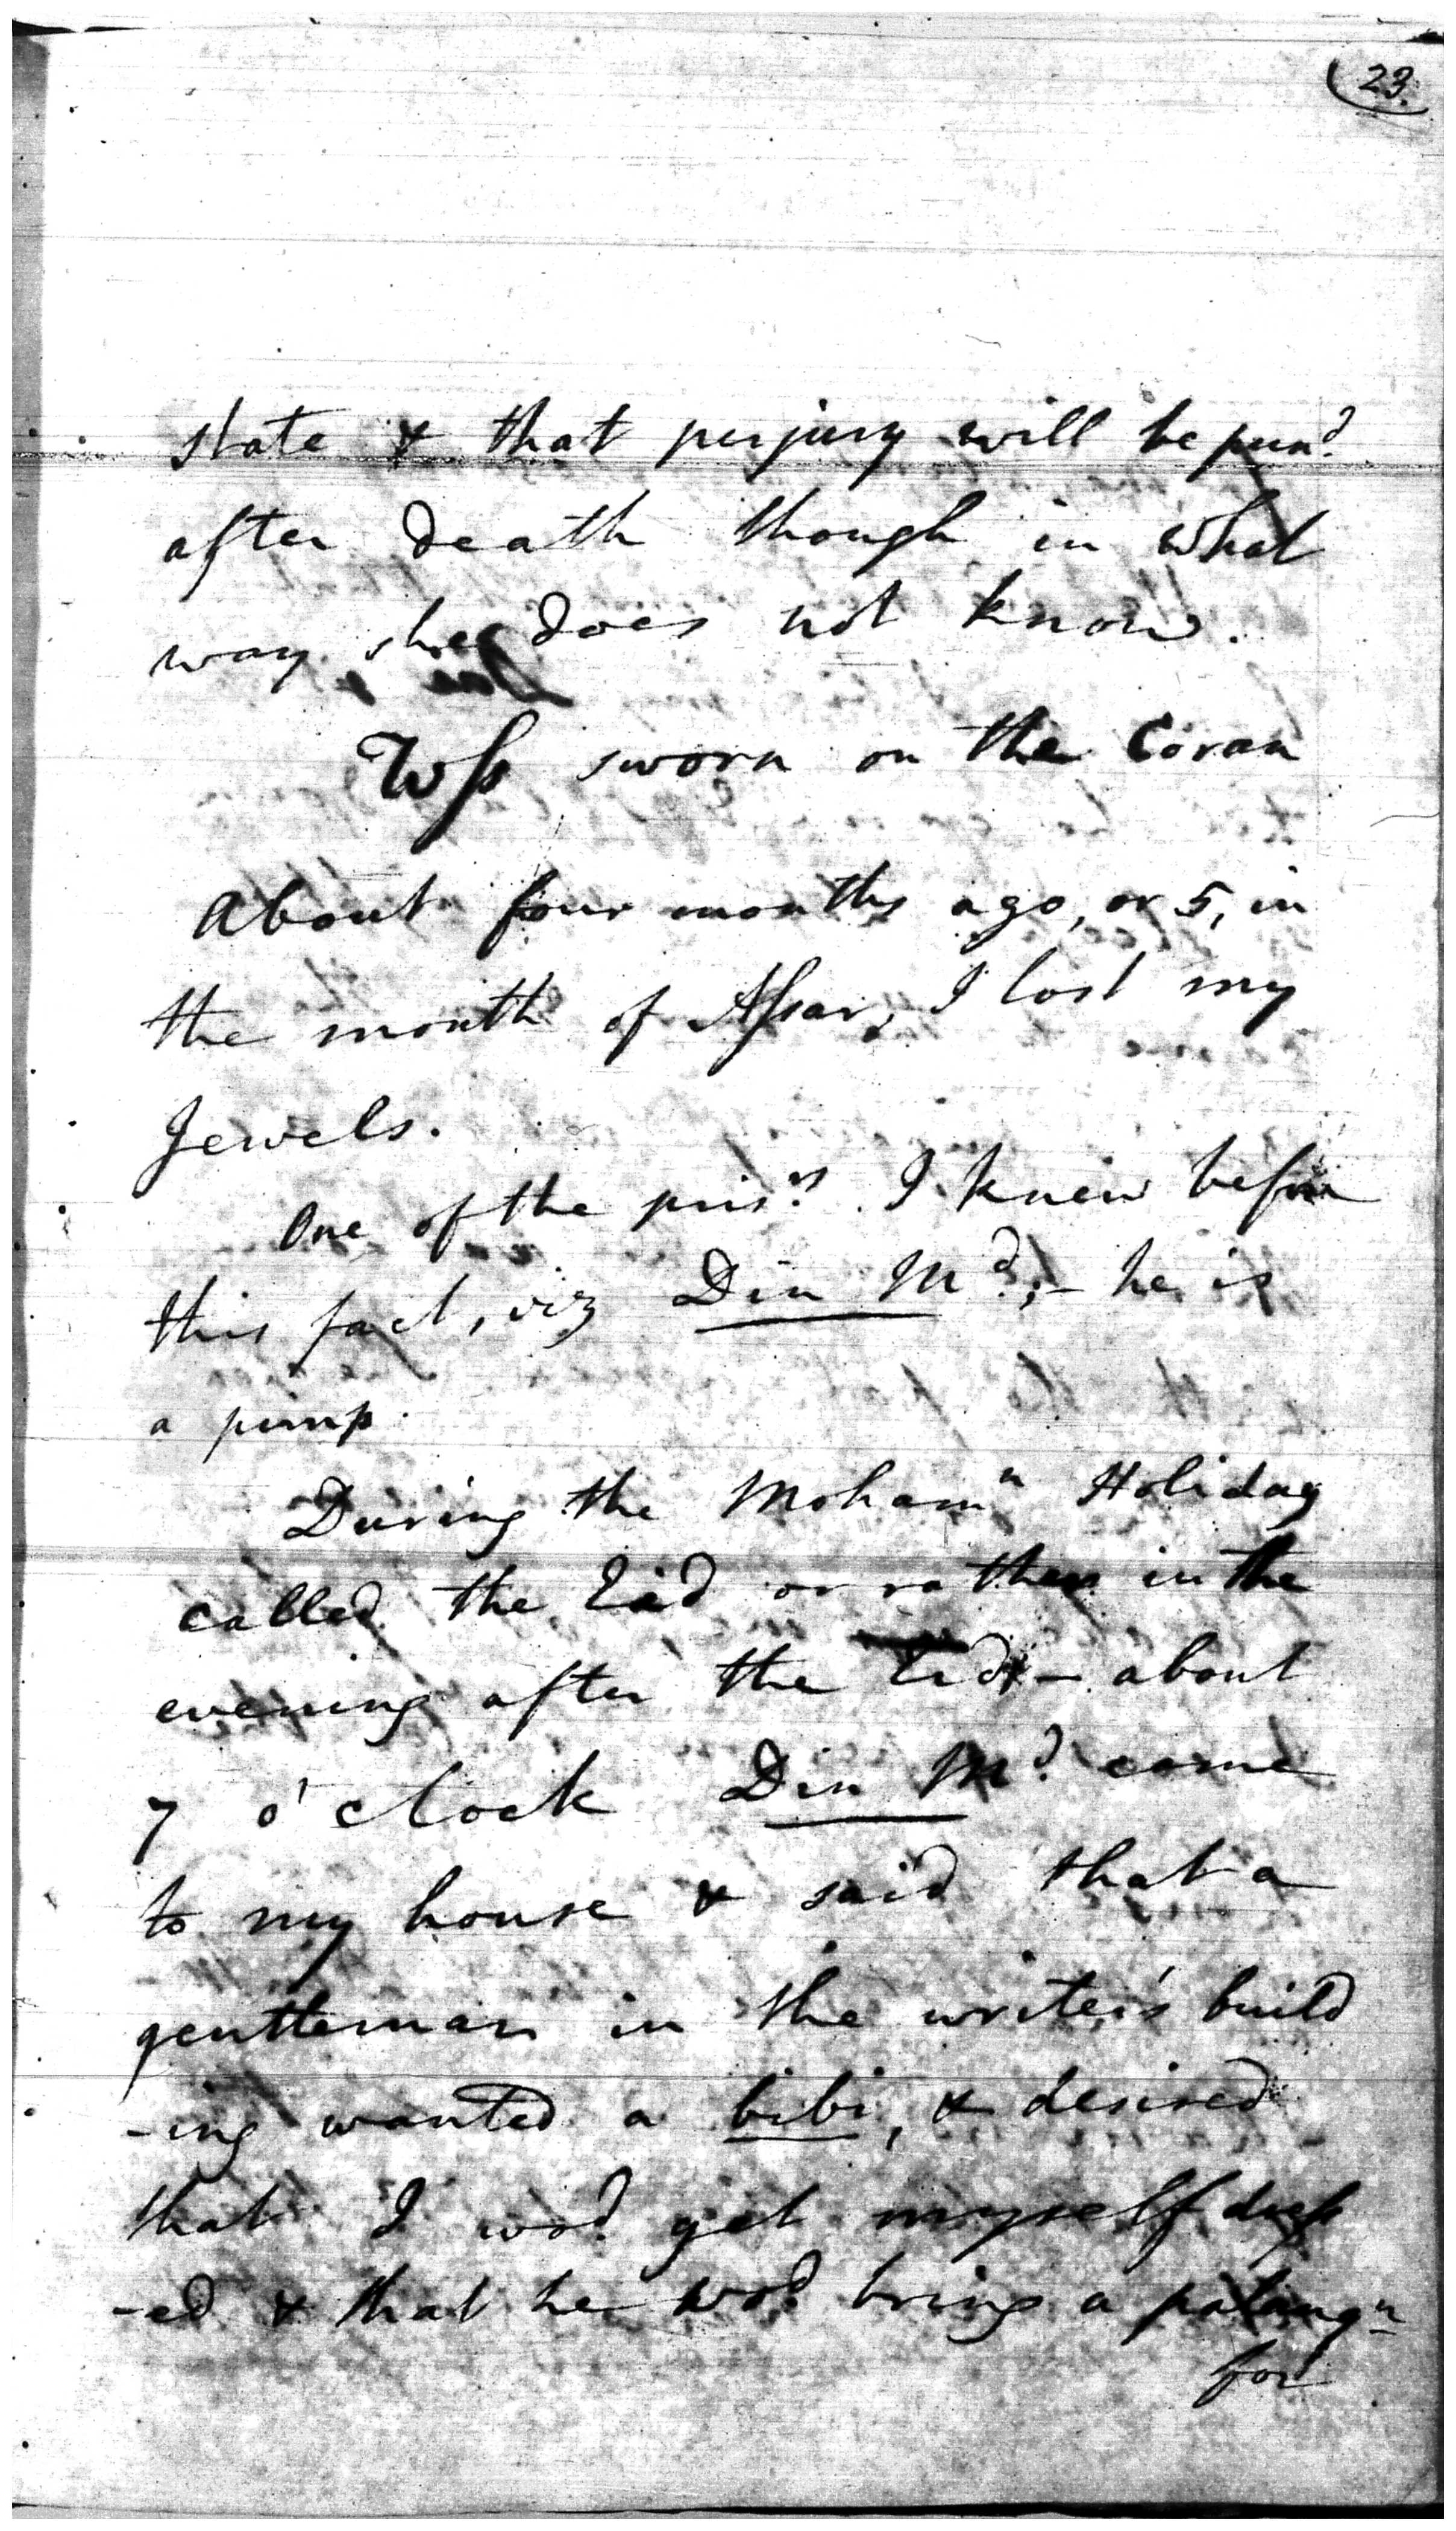 23.
state & that perjury will be pund.
after death though in what
way she does not know.
Wss sworn on the Coran
About four months ago, or 5, in
the month of Assar, I lost my
Jewels.
One of the prisrs. I knew before
this fact, viz Din Md.;- he is
a pimp.
During the Mohamn Holiday
called the Eid or rather in the
evening after the Eid - about
7 o'clock Din Md. came
to my house & said that a
gentleman in the writer's build
-ing wanted a bibi, & desired
that I wod. get myself dress
-ed & that he wod. bring a palanqn
for